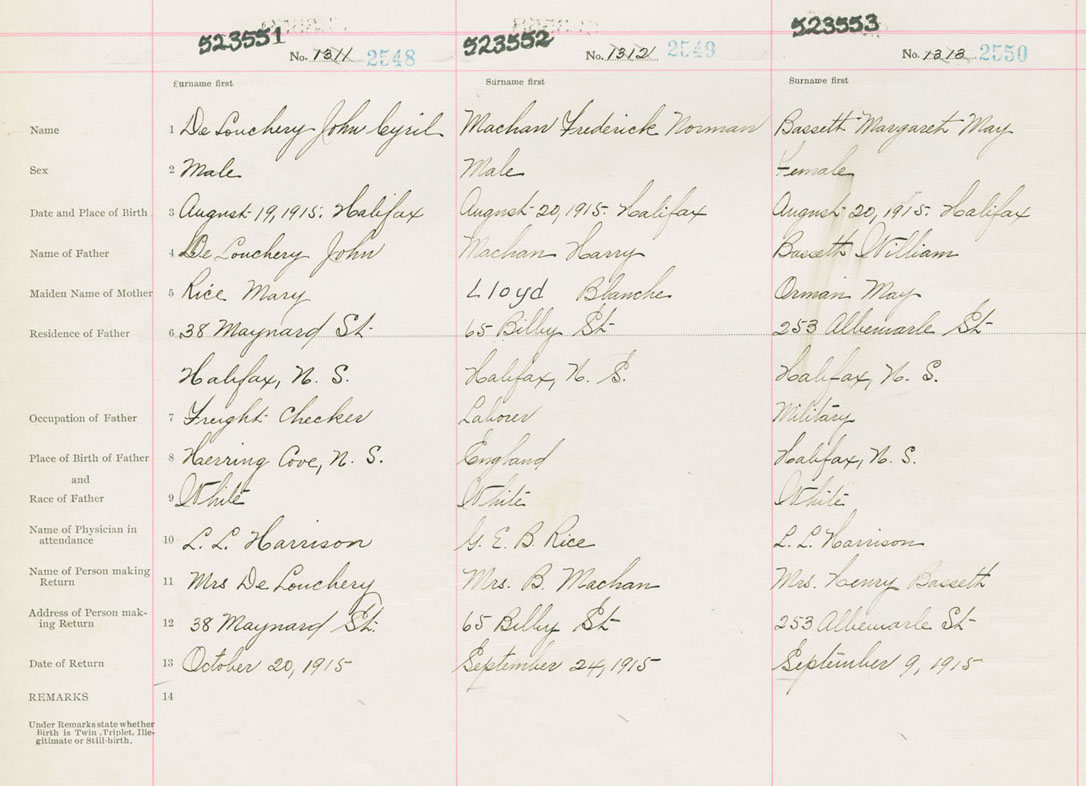 523551 523552 523553
No. 1311 2548 No. 1312 2549 No. 1313 2550
Surname first Surname first Surname first
Name 1 De Louchery John Cyril Machan Frederick Norman Bassett Margaret May
Sex 2 Male Male Female
Date and Place of Birth 3 August 19, 1915. Halifax August 20, 1915. Halifax August 20, 1915. Halifax
Name of Father 4 De Louchery John Machan Harry Bassett William
Maiden Name of Mother 5 Rice Mary Lloyd Blanche Orman May
Residence of Father 6 38 Maynard St 65 Bilby St 253 Albemarle St
Halifax, N. S. Halifax, N. S. Halifax, N. S.
Occupation of Father 7 Freight Checker Laborer Military
Place of Birth of Father 8 Herring Cove, N. S. England Halifax, N. S.
and
Race of Father 9 White White White
Name of Physician in
attendance 10 L. L. Harrison G. E. B. Rice L. L. Harrison
Name of Person making
Return 11 Mrs De Louchery Mrs. B. Machan Mrs. Henry Bassett
Address of Person mak-
ing Return 12 38 Maynard St. 65 Bilby St 253 Albemarle St
Date of Return 13 October 20, 1915 September 24, 1915 September 9, 1915
REMARKS 14
Under Remarks state whether
Birth is Twin, Triplet, Ille-
gitimate or Still-birth.